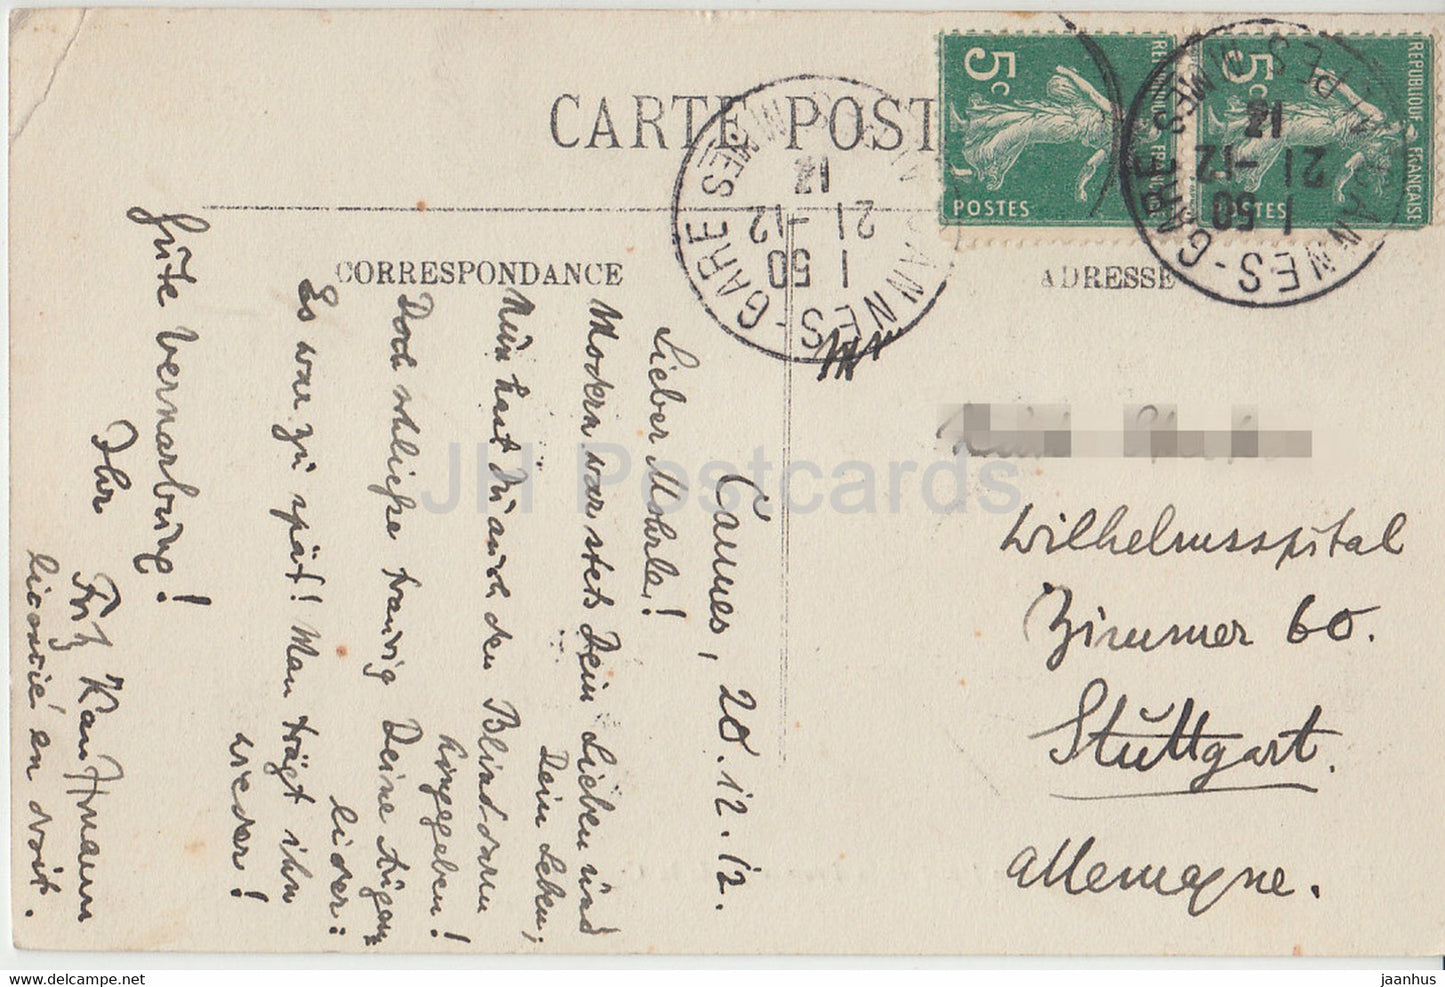 CARTE POST
CORRESPONDANCE
ADRESSE
5c
POSTES
FRANÇAISE
5c
REPUBLIQUE FRANÇAISE
POSTES
CANNES-GARE
1 50
21-12
12
ALPES MMES
CANNES-GARE
1 50
21-12
12
ALPES MMES
Cannes, 20.12.12.
Lieber Mohrle!
Modern war stets Dein Lieben und
Dein Leben,
Nun hast Du auch den Blinddarm
hingegeben!
Doch schließe traurig Deine Augen-
lider:
Es war zu spät! Man trägt ihn
wieder!
Gute Vernarbung!
Ihr
Fritz Kauffmann
licencié en droit.
Wilhelmsspital
Zimmer 60.
Stuttgart.
Allemagne.
JH Postcards
https://www.hippostcard.com
jaanhus